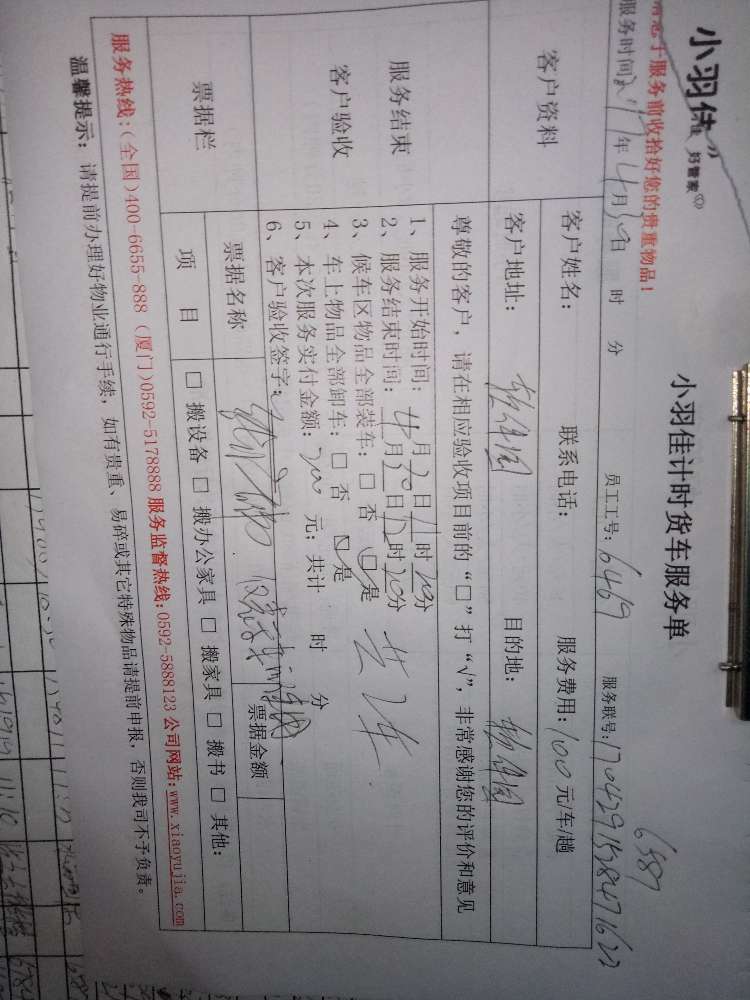 小羽佳 好管家
小羽佳计时货车服务单
请您于服务前收拾好您的贵重物品!
6587
服务时间 年4月30日 时 分 员工工号:6469 服务联号:
客户资料
客户姓名: 联系电话: 服务费用:100元/车/趟
客户地址:软件园 目的地:软件园
服务结束
客户验收
尊敬的客户,请在相应验收项目前的“□”打“√”,非常感谢您的评价和意见
1、服务开始时间:4月 日11时20分
2、服务结束时间:4月30日12时20分
3、候车区物品全部装车:□ 否 □是
4、车上物品全部卸车:□ 否 □是
5、本次服务实付金额:200 元;共计 时 分
共2车
6、客户验收签字:
票据栏
票据名称 票据金额
项 目 □ 搬设备 □ 搬办公家具 □ 搬家具 □ 搬书 □ 其他:
服务热线:(全国)400-6655-888 (厦门)0592-5178888 服务监督热线:0592-5888123 公司网站:www.xiaoyujia.com
温馨提示: 请提前办理好物业通行手续,如有贵重、易碎或其它特殊物品请提前申报,否则我司不予负责。